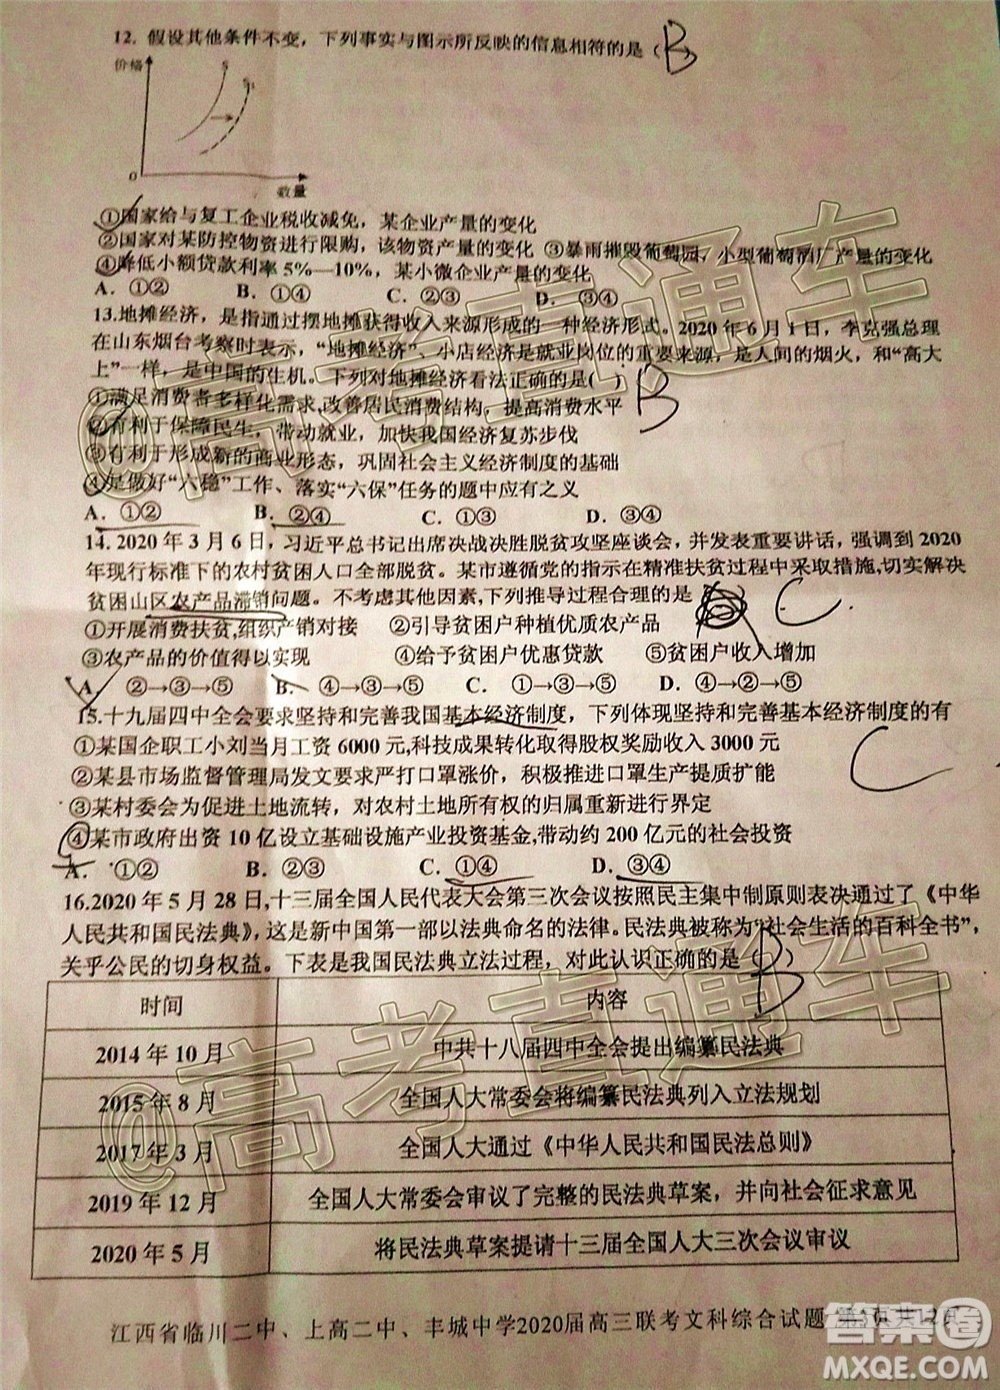 12. 假设其他条件不变，下列事实与图示所反映的信息相符的是（B）
价格
S
S₁
O
数量
①国家给与复工企业税收减免，某企业产量的变化
②国家对某防控物资进行限购，该物资产量的变化 ③暴雨摧毁葡萄园，小型葡萄酒厂产量的变化
④降低小额贷款利率5%—10%，某小微企业产量的变化
A. ①② B. ①④ C. ②③ D. ③④
13.地摊经济，是指通过摆地摊获得收入来源形成的一种经济形式。2020年6月1日，李克强总理
在山东烟台考察时表示，“地摊经济”、小店经济是就业岗位的重要来源，是人间的烟火，和“高大
上”一样，是中国的生机。下列对地摊经济看法正确的是( ) B
①满足消费者多样化需求,改善居民消费结构，提高消费水平
②有利于保障民生，带动就业，加快我国经济复苏步伐
③有利于形成新的商业形态，巩固社会主义经济制度的基础
④是做好“六稳”工作、落实“六保”任务的题中应有之义
A. ①② B. ②④ C. ①③ D. ③④
14.2020年3月6日，习近平总书记出席决战决胜脱贫攻坚座谈会，并发表重要讲话，强调到2020
年现行标准下的农村贫困人口全部脱贫。某市遵循党的指示在精准扶贫过程中采取措施,切实解决
贫困山区农产品滞销问题。不考虑其他因素,下列推导过程合理的是 C.
①开展消费扶贫,组织产销对接 ②引导贫困户种植优质农产品
③农产品的价值得以实现 ④给予贫困户优惠贷款 ⑤贫困户收入增加
A. ②→③→⑤ B. ④→③→⑤ C. ①→③→⑤ D. ④→②→⑤
15.十九届四中全会要求坚持和完善我国基本经济制度，下列体现坚持和完善基本经济制度的有
①某国企职工小刘当月工资6000元,科技成果转化取得股权奖励收入3000元
C
②某县市场监督管理局发文要求严打口罩涨价，积极推进口罩生产提质扩能
③某村委会为促进土地流转，对农村土地所有权的归属重新进行界定
④某市政府出资10亿设立基础设施产业投资基金,带动约200亿元的社会投资
A. ①② B. ②③ C. ①④ D. ③④
16.2020年5月28日,十三届全国人民代表大会第三次会议按照民主集中制原则表决通过了《中华
人民共和国民法典》,这是新中国第一部以法典命名的法律。民法典被称为“社会生活的百科全书”，
关乎公民的切身权益。下表是我国民法典立法过程，对此认识正确的是（B）
时间 内容
2014年10月 中共十八届四中全会提出编纂民法典
2015年8月 全国人大常委会将编纂民法典列入立法规划
2017年3月 全国人大通过《中华人民共和国民法总则》
2019年12月 全国人大常委会审议了完整的民法典草案，并向社会征求意见
2020年5月 将民法典草案提请十三届全国人大三次会议审议
江西省临川二中、上高二中、丰城中学2020届高三联考文科综合试题 第3页共12页
@高考直通车
@高考直通车
答案圈
MXQE.COM